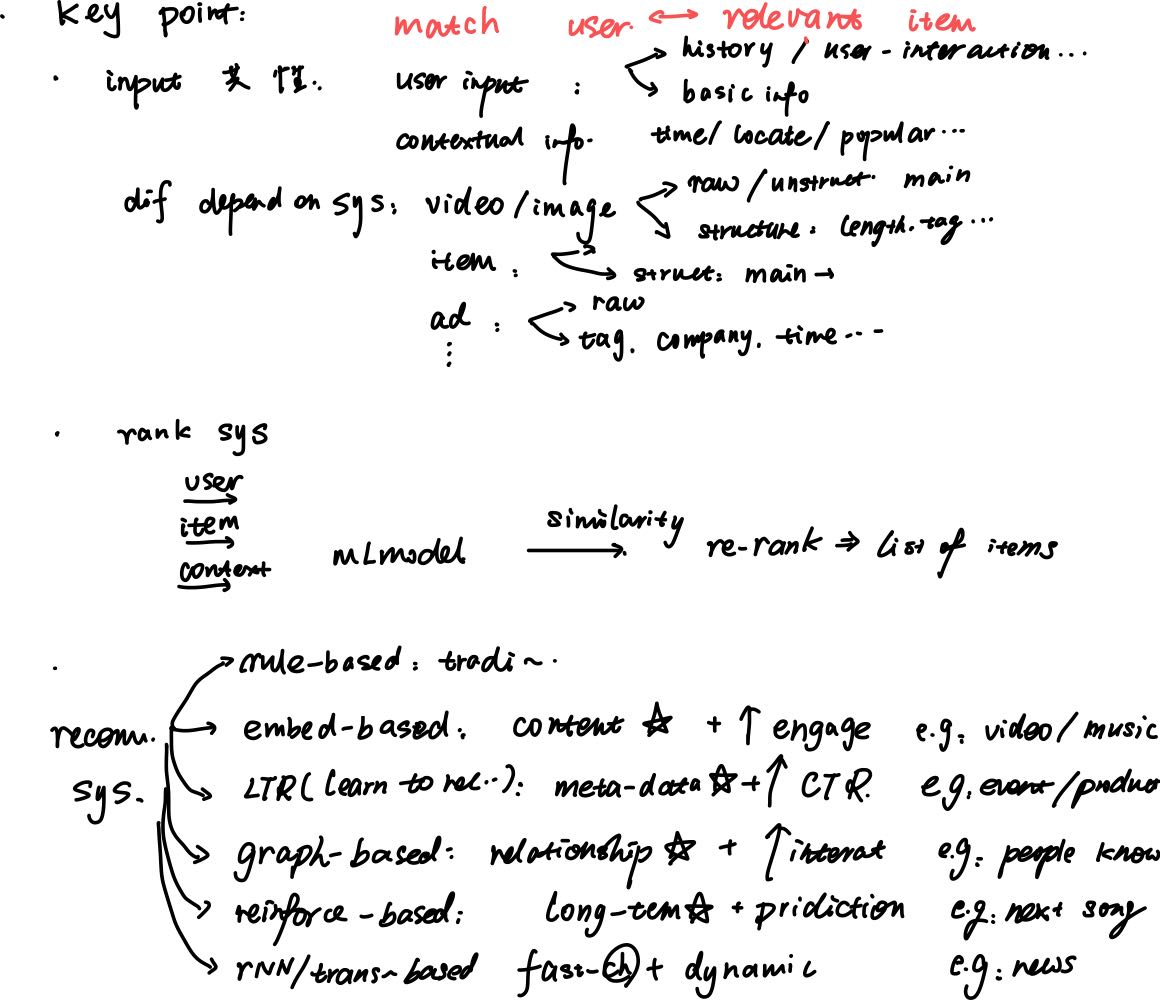 · Key point: match user ↔ relevant item
· input 共性. user input : → history / user-interaction...
→ basic info
contextual info. time/ locate/ popular...
dif depend on sys: video/image → raw/unstruct. main
→ structure: length. tag ...
item :
→ struct: main →
ad : → raw
→ tag. company. time...-
⋮
· rank sys
user
item
context
mLmodel similarity → re-rank ⇒ list of items
· recomm. sys.
→ rule-based: tradi~.
→ embed-based: content ☆ + ↑ engage e.g: video/music
→ LTR(learn to rec..): meta-data ☆ + ↑ CTR. e.g: event/product
→ graph-based: relationship ☆ + ↑ interat e.g: people know
→ reinforce-based: long-tem ☆ + pridiction e.g: next song
→ rNN/trans~based fast-ch + dynamic e.g: news